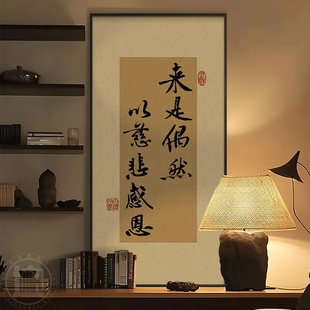 来是偶然
以慈悲感恩